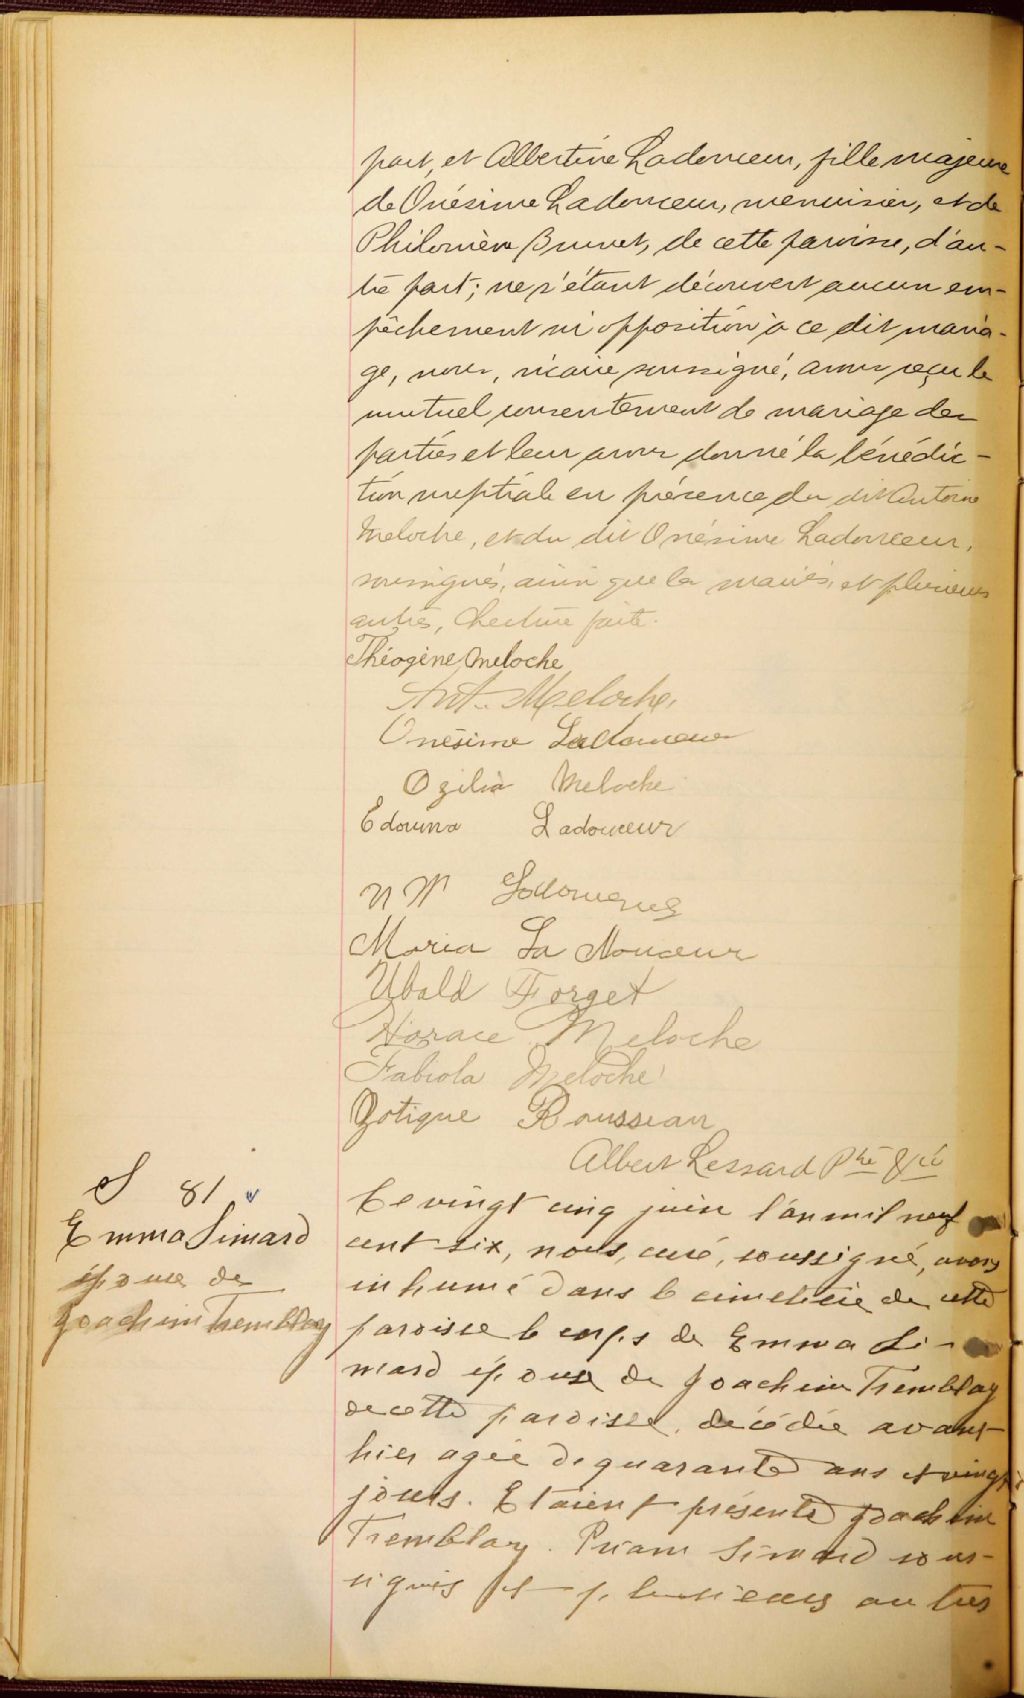 part, et Albertine Ladouceur, fille majeure
de Onésime Ladouceur, menuisier, et de
Philomène Brunet, de cette paroisse, d'au-
tre part; ne s'étant découvert aucun em-
pêchement ni opposition à ce dit maria-
ge, nous, vicaire soussigné, avons reçu le
mutuel consentement de mariage des
parties et leur avons donné la bénédic-
tion nuptiale en présence du dit Antoine
Meloche, et du dit Onésime Ladouceur,
soussignés, ainsi que les mariés, et plusieurs
autres, Lecture faite.
Théogène Meloche
Ant. Meloche,
Onésime Ladouceur
Ozilia Meloche
Edouina Ladouceur
Maria La Douceur
Ubald Forget
Horace Meloche
Fabiola Meloche
Zotique Rousseau
Albert Lessard Ptre Vic
S 81
Emma Simard
épouse de
Joachim Tremblay
Le vingt cinq juin l'an mil neuf
cent six, nous, curé, soussigné, avons
inhumé dans le cimetière de cette
paroisse le corps de Emma Si-
mard épouse de Joachim Tremblay
de cette paroisse, décédée avant
hier agée de quarante ans et vingt
jours. Etaient présents Joachim
Tremblay. Priam Simard sous-
signés et plusieurs autres